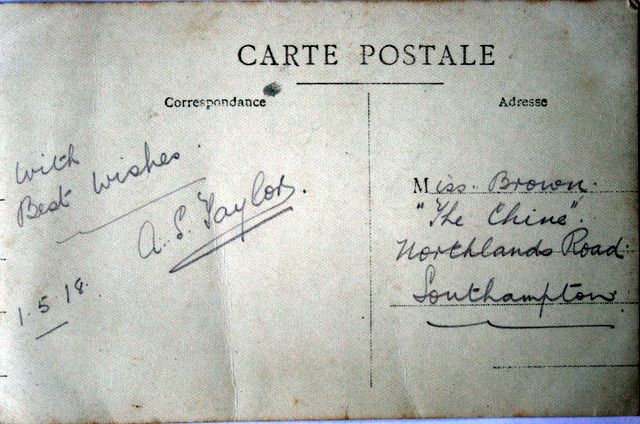 CARTE POSTALE
Correspondance
Adresse
With
Best Wishes.
A. S. Taylor.
1.5.18.
Miss. Brown.
"The Chine".
Northlands Road.
Southampton.